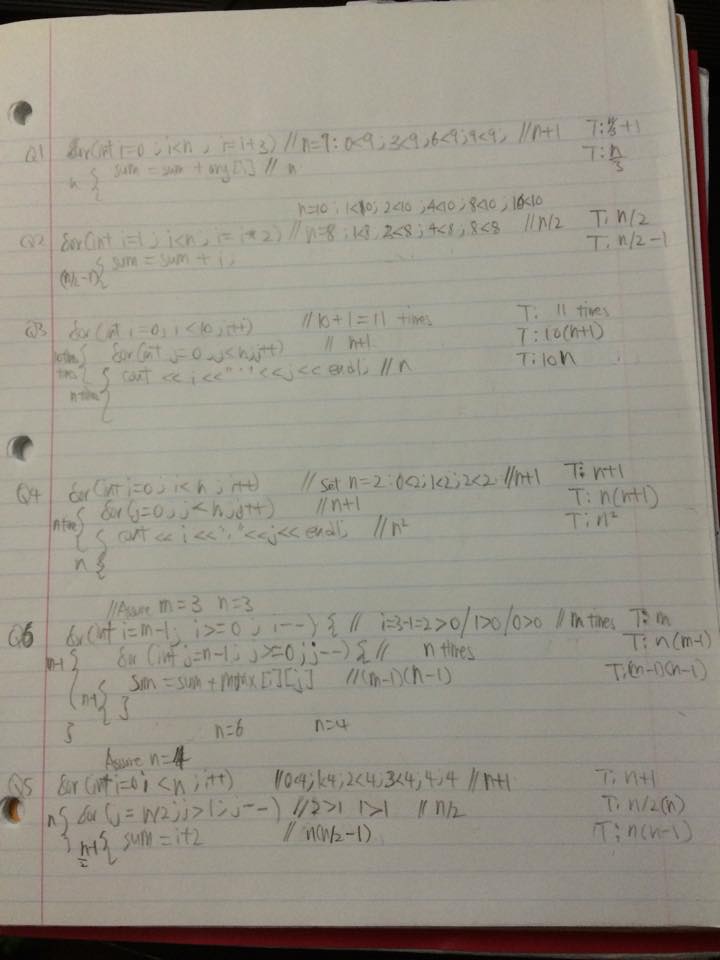 Q1 for(int i=0; i<n, i=i+3) // n=9: 0<9; 3<9; 6<9; 9<9, // n+1 T: n/3+1
n { sum = sum + [i] // n T: n/3
n=10; 1<10; 2<10; 4<10; 8<10; 16<10
Q2 for(int i=1; i<n, i=i*2) // n=8; 1<8, 2<8; 4<8; 8<8 // n/2 T: n/2
(n/2-1){ sum = sum + i; T: n/2-1
Q3 for(int i=0, i<10, i++) // 10+1=11 times T: 11 times
10 times { for(int j=0, j<n, j++) // n+1 T: 10(n+1)
n times { cout << i << "," << j << endl; // n T: 10n
Q4 for(int i=0; i<n, i++) // Set n=2: 0<2; 1<2; 2<2 // n+1 T: n+1
n time { for(j=0, j<n, j++) // n+1 T: n(n+1)
{ cout << i << "," << j << endl; // n² T: n²
n {
//Assure m=3 n=3
Q6 for(int i=m-1; i>=0, i--) { // i=3-1=2>0/1>0/0>0 // m times T: m
n-1 { for (int j=n-1; j>=0; j--) { // n times T: n(m-1)
(n-1){ sum = sum + [i][j] // (m-1)(n-1) T: (m-1)(n-1)
}
} n=6 n=4
Assure n=4
Q5 for(int i=0; i<n, i++) // 0<4; 1<4; 2<4; 3<4, 4<4 // n+1 T: n+1
n { for(j=n/2; j>1; j--) // 2>1 1>1 // n/2 T: n/2(n)
} n/2-1 { sum = i+2 // n(n/2-1) T: n(n-1)